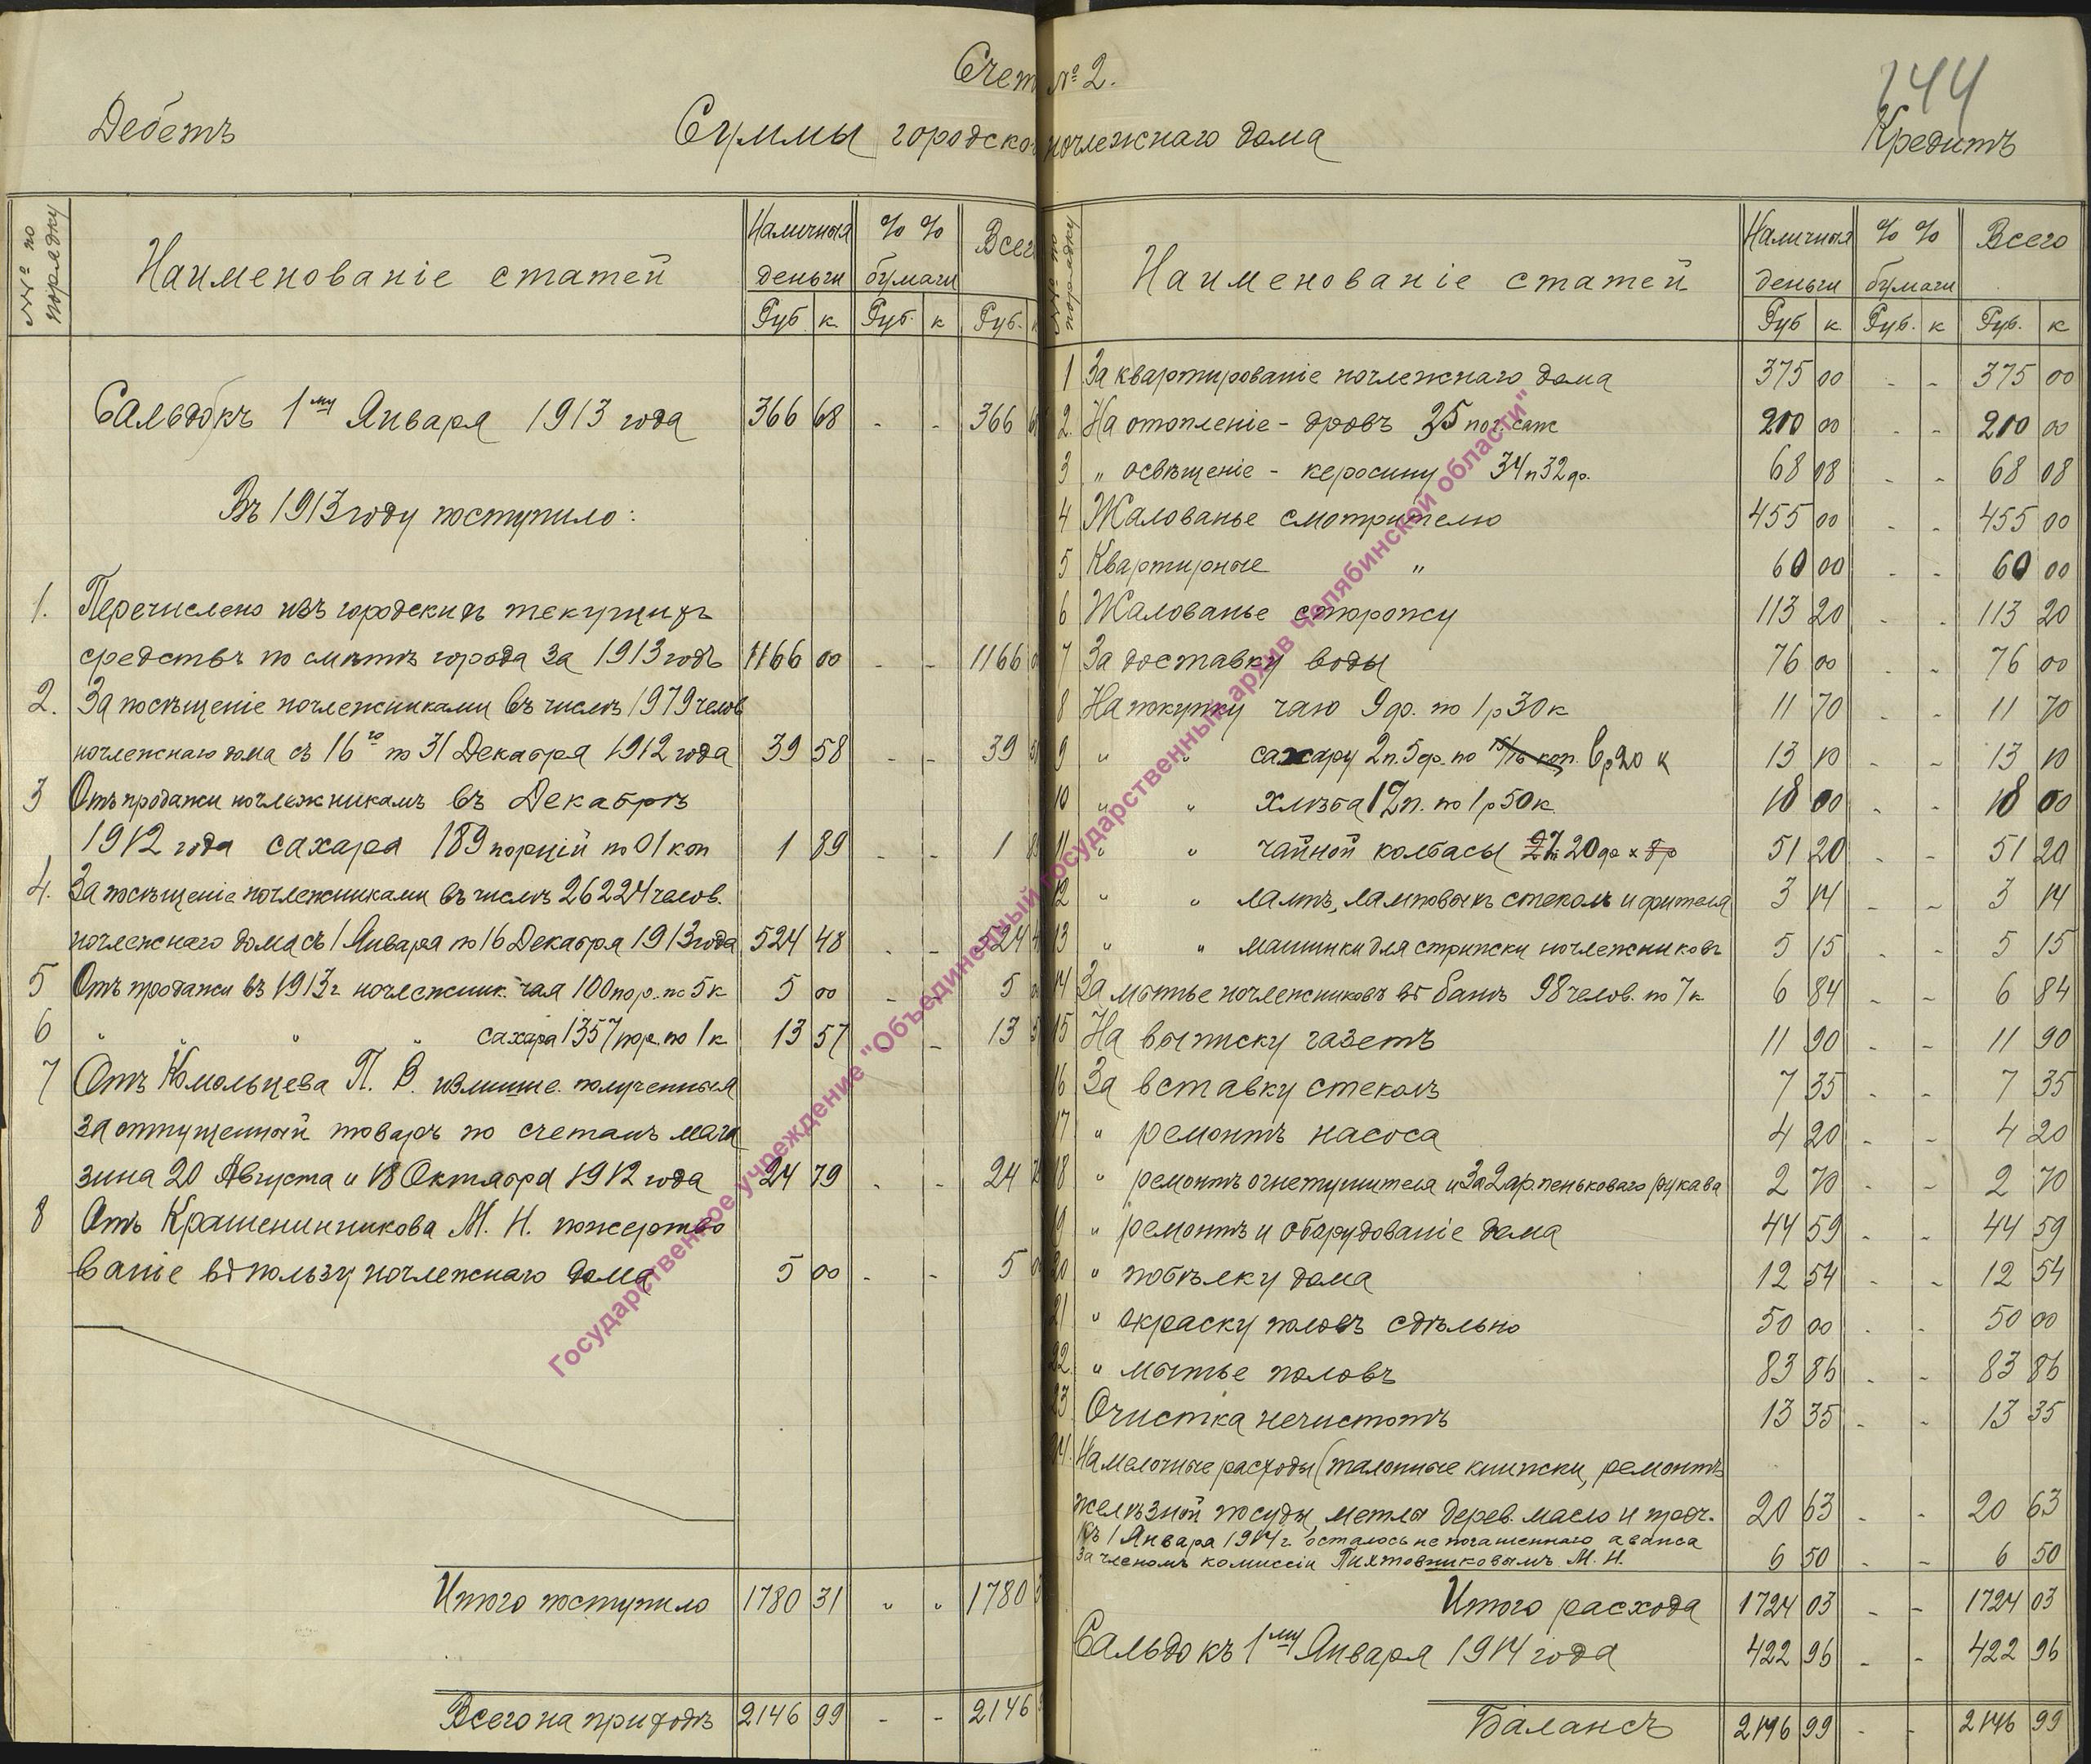 Счет № 2.
244
Дебетъ
Суммы городского ночлежнаго дома
Кредитъ
№№ по порядку
Наименованіе статей
Наличныя деньги
% % бумаги
Всего
Руб. к. Руб. к Руб. к
Сальдо къ 1му Января 1913 года 366 68 - - 366 68
Въ 1913 году поступило:
1. Перечислено изъ городскихъ текущихъ
средствъ по смѣтѣ города за 1913 годъ 1166 00 - - 1166 00
2. За посѣщеніе ночлежниками въ числѣ 1979 челов
ночлежнаго дома съ 16го по 31 Декабря 1912 года 39 58 - - 39 58
3 Отъ продажи ночлежникамъ въ Декабрѣ
1912 года сахара 189 порцій по 01 коп 1 89 - - 1 89
4. За посѣщеніе ночлежниками въ числѣ 26224 челов.
ночлежнаго дома съ 1 Января по 16 Декабря 1913 года 524 48 - - 524 48
5 Отъ продажи въ 1913 г ночлежник. чая 100 пор. по 5 к 5 00 - - 5 00
6 " " " сахара 1357 пор. по 1 к 13 57 - - 13 57
7 Отъ Комольцева П. В. излишне полученныя
за отпущенный товаръ по счетамъ мага
зина 20 Августа и 18 Октября 1912 года 24 79 - - 24 79
8 Отъ Крашенинникова М. Н. пожертво
ваніе въ пользу ночлежнаго дома 5 00 - - 5 00
Итого поступило 1780 31 " " 1780 31
Всего на приходъ 2146 99 - - 2146 99
№№ по порядку
Наименованіе статей
Наличныя деньги
% % бумаги
Всего
Руб к Руб. к Руб. к
1 За квартированіе ночлежнаго дома 375 00 - - 375 00
2. На отопленіе - дровъ 35 пог. саж 210 00 - - 210 00
3 " освѣщеніе - керосину 34 п 32 ф. 68 08 - - 68 08
4 Жалованье смотрителю 455 00 - - 455 00
5 Квартирные " 60 00 - - 60 00
6 Жалованье сторожу 113 20 - - 113 20
7 За доставку воды 76 00 - - 76 00
8 На покупку чаю 9 ф. по 1 р 30 к 11 70 - - 11 70
9 " " сахару 2 п. 5 ф. по 15/16 коп. 6 р 20 к 13 10 - - 13 10
10 " " хлѣба 12 п. по 1 р 50 к 18 00 - - 18 00
11 " " чайной колбасы 20 ф х 8 р 51 20 - - 51 20
12 " " лампъ, ламповыхъ стеколъ и фитиля 3 14 - - 3 14
13 " " машинки для стрижки ночлежниковъ 5 15 - - 5 15
14 За мытье ночлежниковъ въ банѣ 98 челов. по 7 к 6 84 - - 6 84
15 На выписку газетъ 11 90 - - 11 90
16 За вставку стеколъ 7 35 - - 7 35
17 " ремонтъ насоса 4 20 - - 4 20
18 " ремонтъ огнетушителя и за 2 ар. пеньковаго рукава 2 70 - - 2 70
19 " ремонтъ и оборудованіе дома 44 59 - - 44 59
20 " побѣлку дома 12 54 - - 12 54
21 " окраску половъ сдѣльно 50 00 - - 50 00
22. " мытье половъ 83 86 - - 83 86
23 Очистка нечистотъ 13 35 - - 13 35
24. На мелочные расходы (талонные книжки, ремонтъ
желѣзной посуды, метлы дерев. масло и проч. 20 63 - - 20 63
Къ 1 Января 1914 г. осталось не погашеннаго аванса
за членомъ комиссіи Пихтовниковымъ М. Н. 6 50 - - 6 50
Итого расхода 1724 03 - - 1724 03
Сальдо къ 1му Января 1914 года 422 96 - - 422 96
Балансъ 2146 99 - - 2146 99
Государственное учреждение "Объединенный государственный архив Челябинской области"